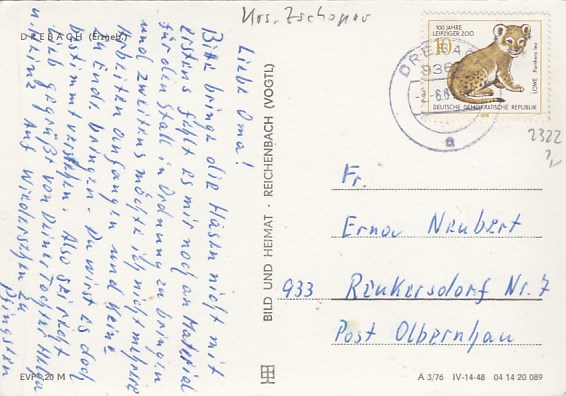 Krs. Zschopau
DREBACH (Erzgeb.)
Liebe Oma!
Bitte bringe die Hasen nicht mit
erstens fehlt es mir noch an Material
für den Stall in Ordnung zu bringen
und zweitens möchte ich nicht mehrere
Arbeiten anfangen und keine
zu Ende bringen. Du wirst es doch
bestimmt verstehen. Also sei recht
lieb gegrüßt von Deiner Tochter
u. Heinz Auf Wiedersehen zu
Pfingsten
EVP 0,20 M
BILD UND HEIMAT · REICHENBACH (VOGTL)
100 JAHRE
LEIPZIGER ZOO
10
LÖWE Panthera leo
DEUTSCHE DEMOKRATISCHE REPUBLIK
1978
DREBACH
936
a
2322
Fr.
Erna Neubert
933 Reukersdorf Nr. 7
Post Olbernhau
A 3/76 IV-14-48 04 14 20 089